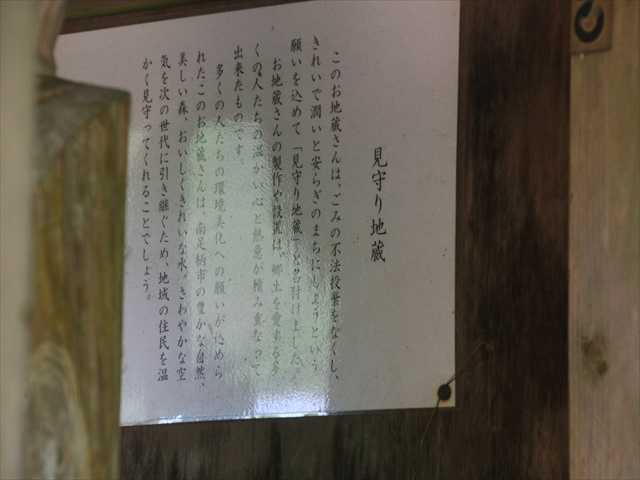 見守り地蔵
このお地蔵さんは、ごみの不法投棄をなくし、
きれいで潤いと安らぎのまちにしようという
願いを込めて「見守り地蔵」と名付けました。
お地蔵さんの製作や設置は、郷土を愛する多
くの人たちの温かい心と熱意が積み重なって
出来たものです。
多くの人たちの環境美化への願いが込めら
れたこのお地蔵さんは、南足柄市の豊かな自然、
美しい森、おいしくきれいな水、さわやかな空
気を次の世代に引き継ぐため、地域の住民を温
かく見守ってくれることでしょう。